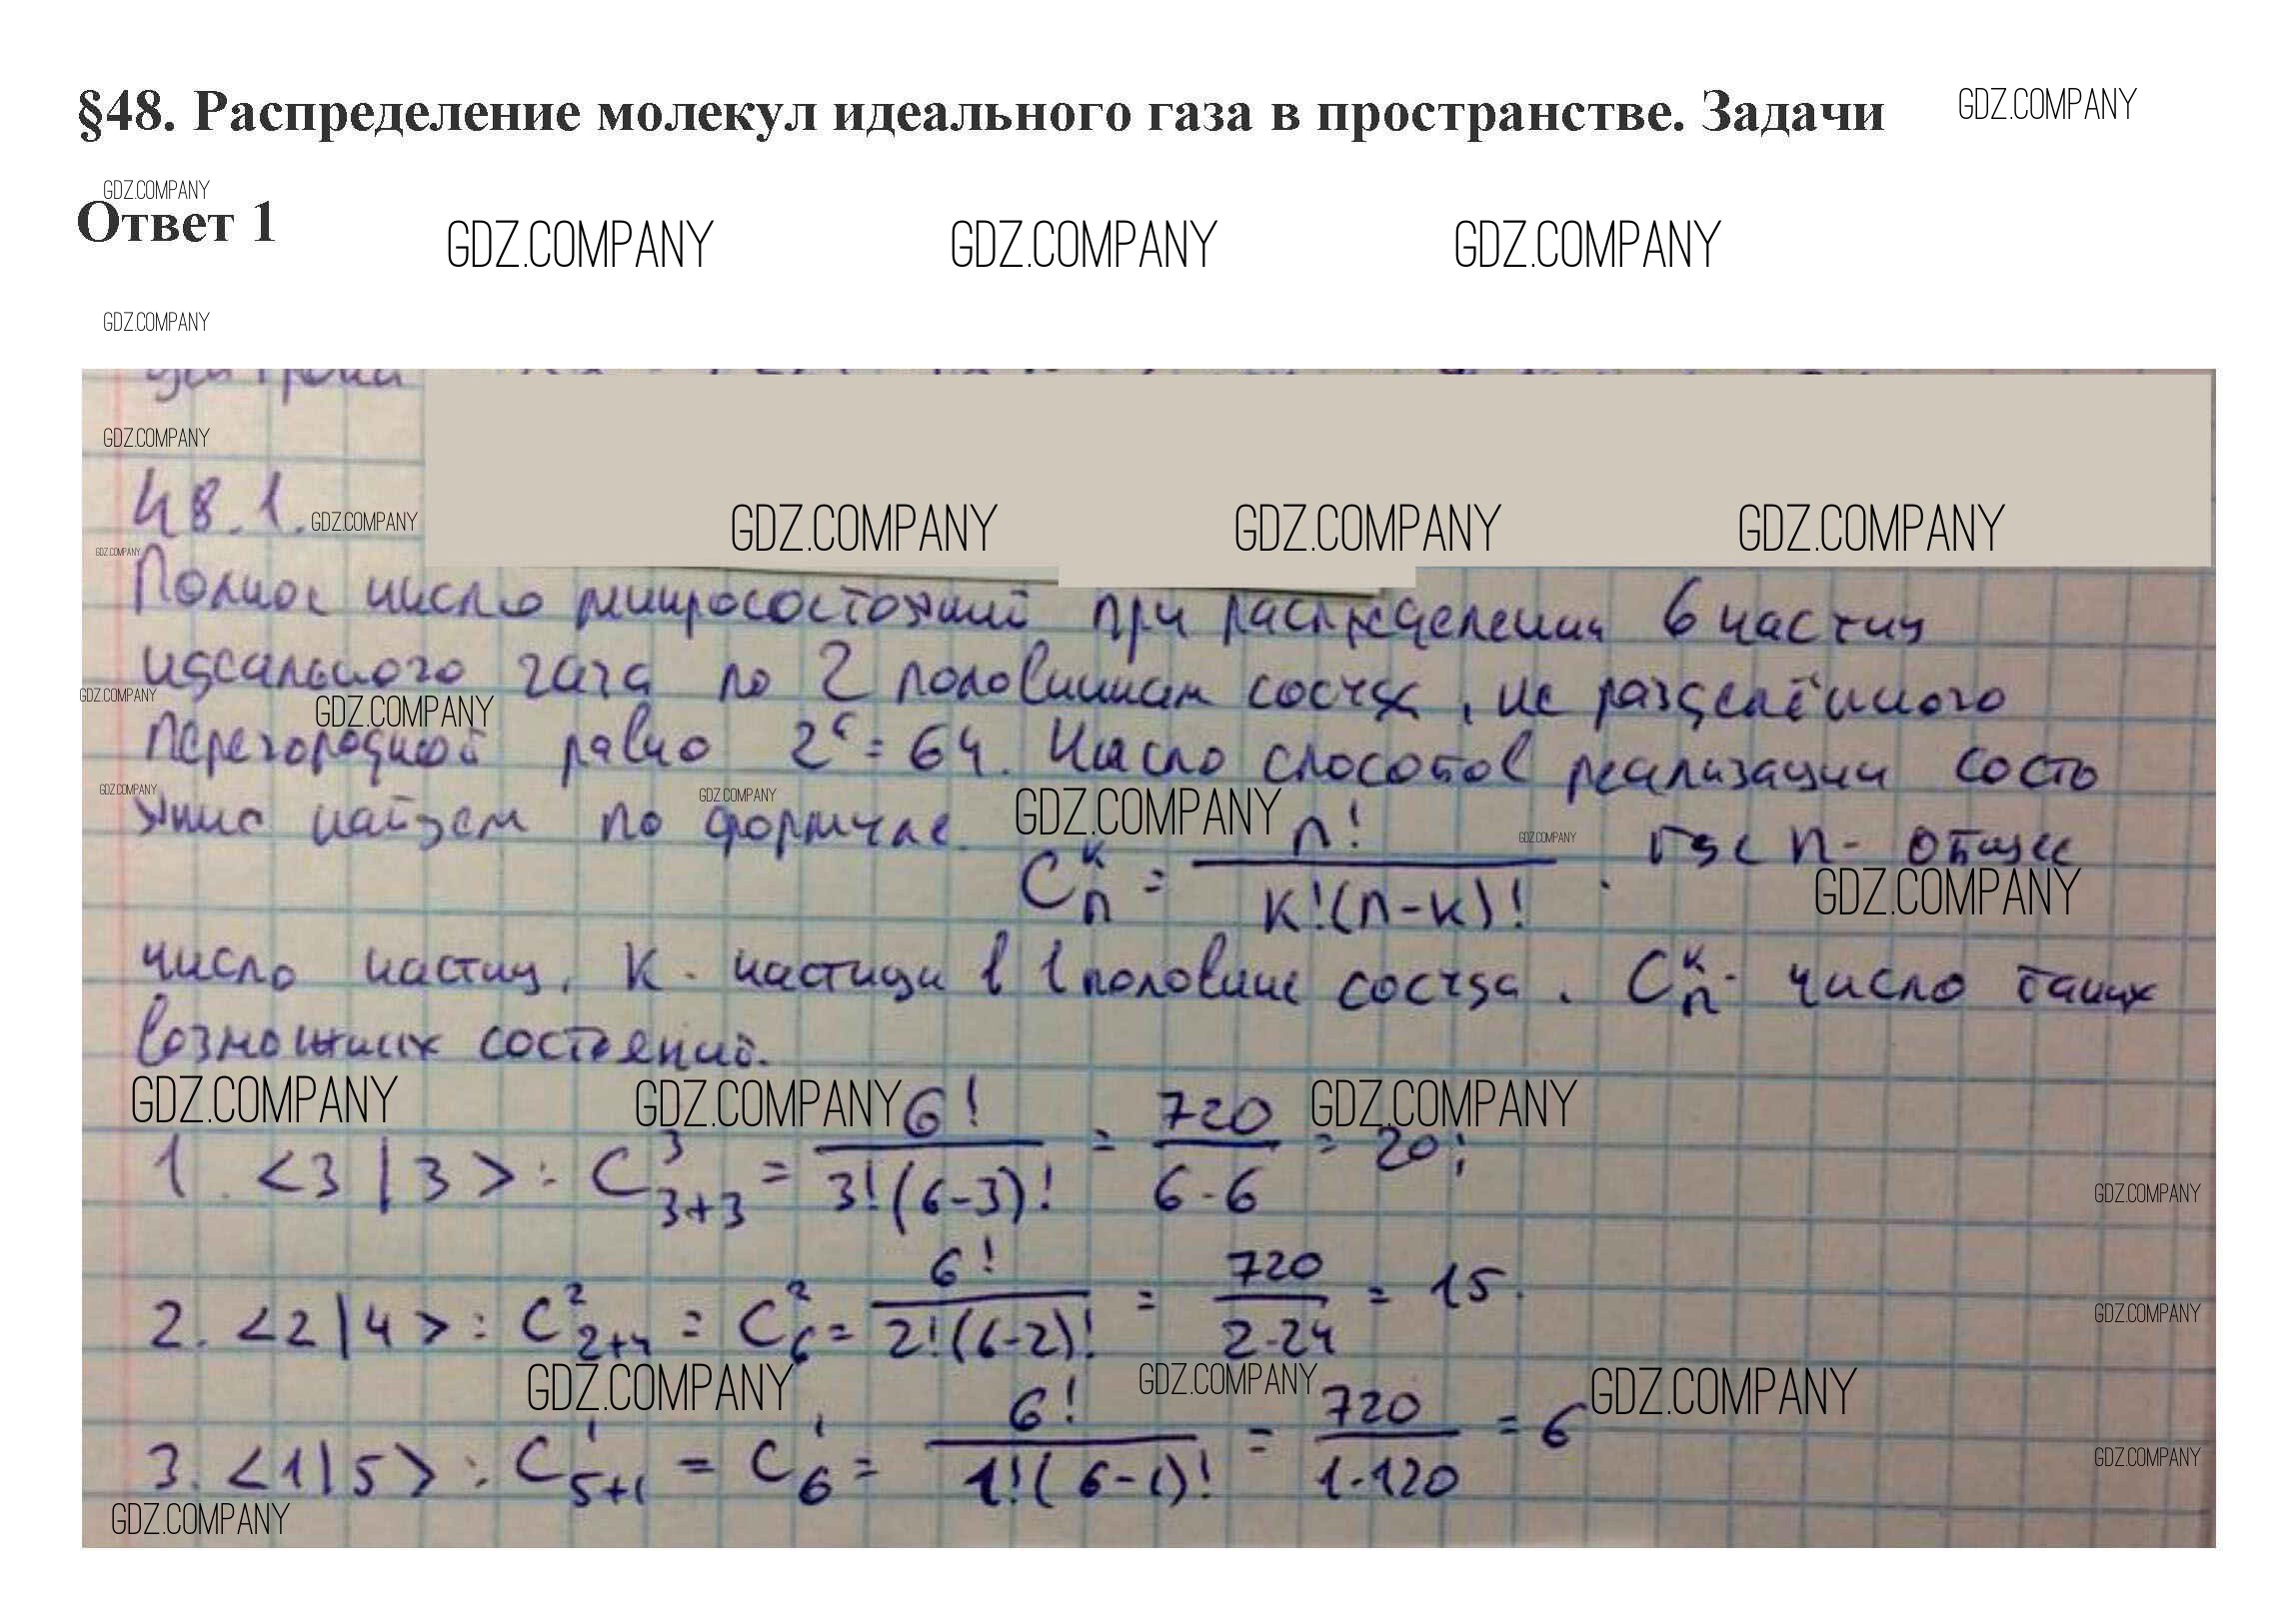 §48. Распределение молекул идеального газа в пространстве. Задачи GDZ.COMPANY
GDZ.COMPANY
Ответ 1
GDZ.COMPANY GDZ.COMPANY GDZ.COMPANY
GDZ.COMPANY
GDZ.COMPANY
48.1. GDZ.COMPANY GDZ.COMPANY GDZ.COMPANY GDZ.COMPANY
GDZ.COMPANY
Полное число микросостояний при распределении 6 частиц
идеального газа по 2 половинкам сосуда, не разделённого
GDZ.COMPANY GDZ.COMPANY
перегородкой равно 2^6 = 64. Число способов реализации состо
GDZ.COMPANY GDZ.COMPANY GDZ.COMPANY GDZ.COMPANY
яние найдем по формуле. C_n^k = n! / k!(n-k)! . где n- общее
GDZ.COMPANY
число частиц, k - частицы в 1 половине сосуда. C_n^k - число таких
возможных состояний.
GDZ.COMPANY GDZ.COMPANY GDZ.COMPANY
1. <3|3> : C_{3+3}^3 = 6! / 3!(6-3)! = 720 / 6·6 = 20;
GDZ.COMPANY
2. <2|4> : C_{2+4}^2 = C_6^2 = 6! / 2!(6-2)! = 720 / 2·24 = 15.
GDZ.COMPANY
GDZ.COMPANY GDZ.COMPANY GDZ.COMPANY
3. <1|5> : C_{5+1}^1 = C_6^1 = 6! / 1!(6-1)! = 720 / 1·120 = 6
GDZ.COMPANY
GDZ.COMPANY